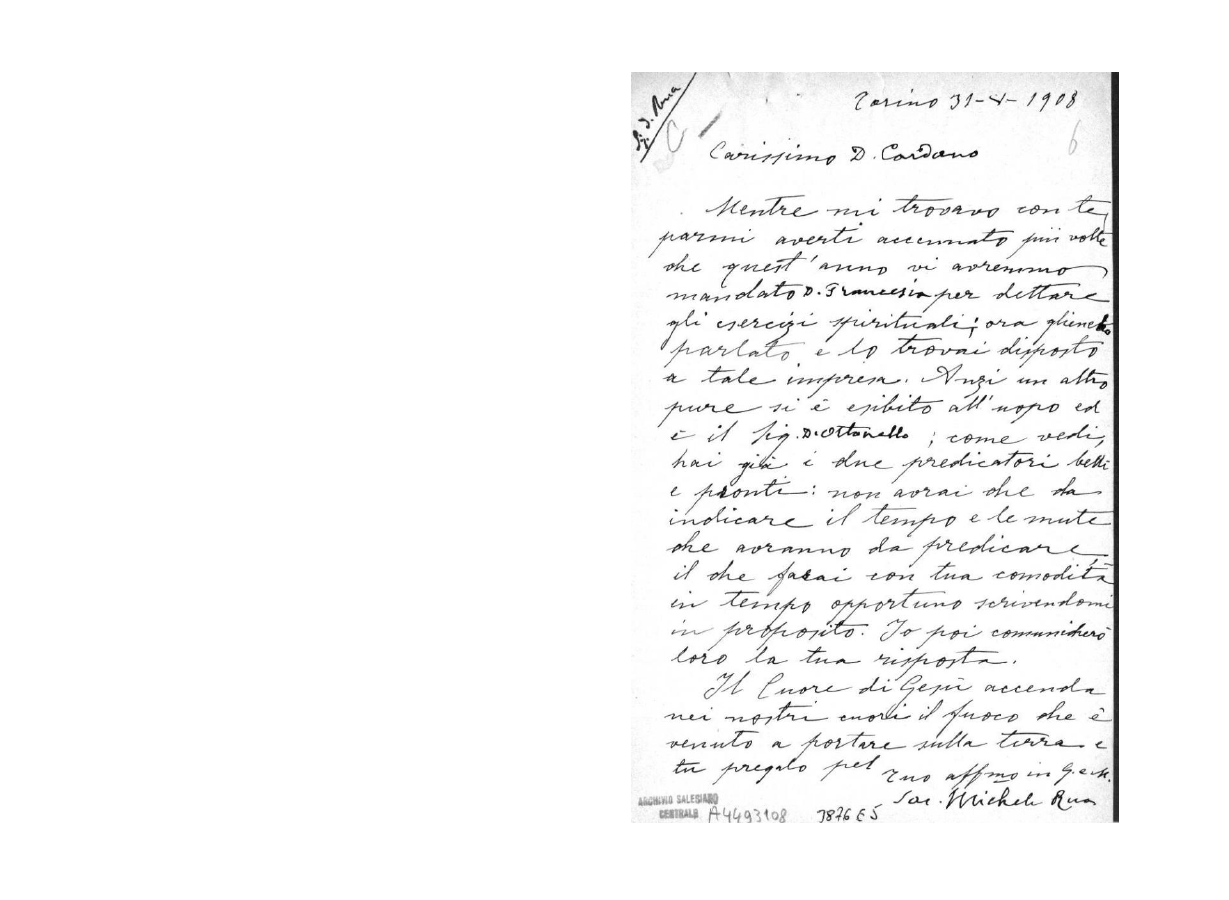 Sig. D. Rua
Torino 31-V-1908
6
Carissimo D. Cardano
Mentre mi trovavo con te,
parmi averti accennato più volte
che quest'anno vi avremmo
mandato D. Francesia per dettare
gli esercizi spirituali; ora gliene ho
parlato e lo trovai disposto
a tale impresa. Anzi un altro
pure si è esibito all'uopo ed
è il Sig. D. Ottonello; come vedi,
hai già i due predicatori belli
e pronti: non avrai che da
indicare il tempo e le mute
che avranno da predicare,
il che farai con tua comodità
in tempo opportuno scrivendomi
in proposito. Io poi comunicherò
loro la tua risposta.
Il Cuore di Gesù accenda
nei nostri cuori il fuoco che è
venuto a portare sulla terra e
tu pregalo pel
Tuo affmo in G. e M.
Sac. Michele Rua
ARCHIVIO SALESIANO
CENTRALE
A4493108
3876 E5